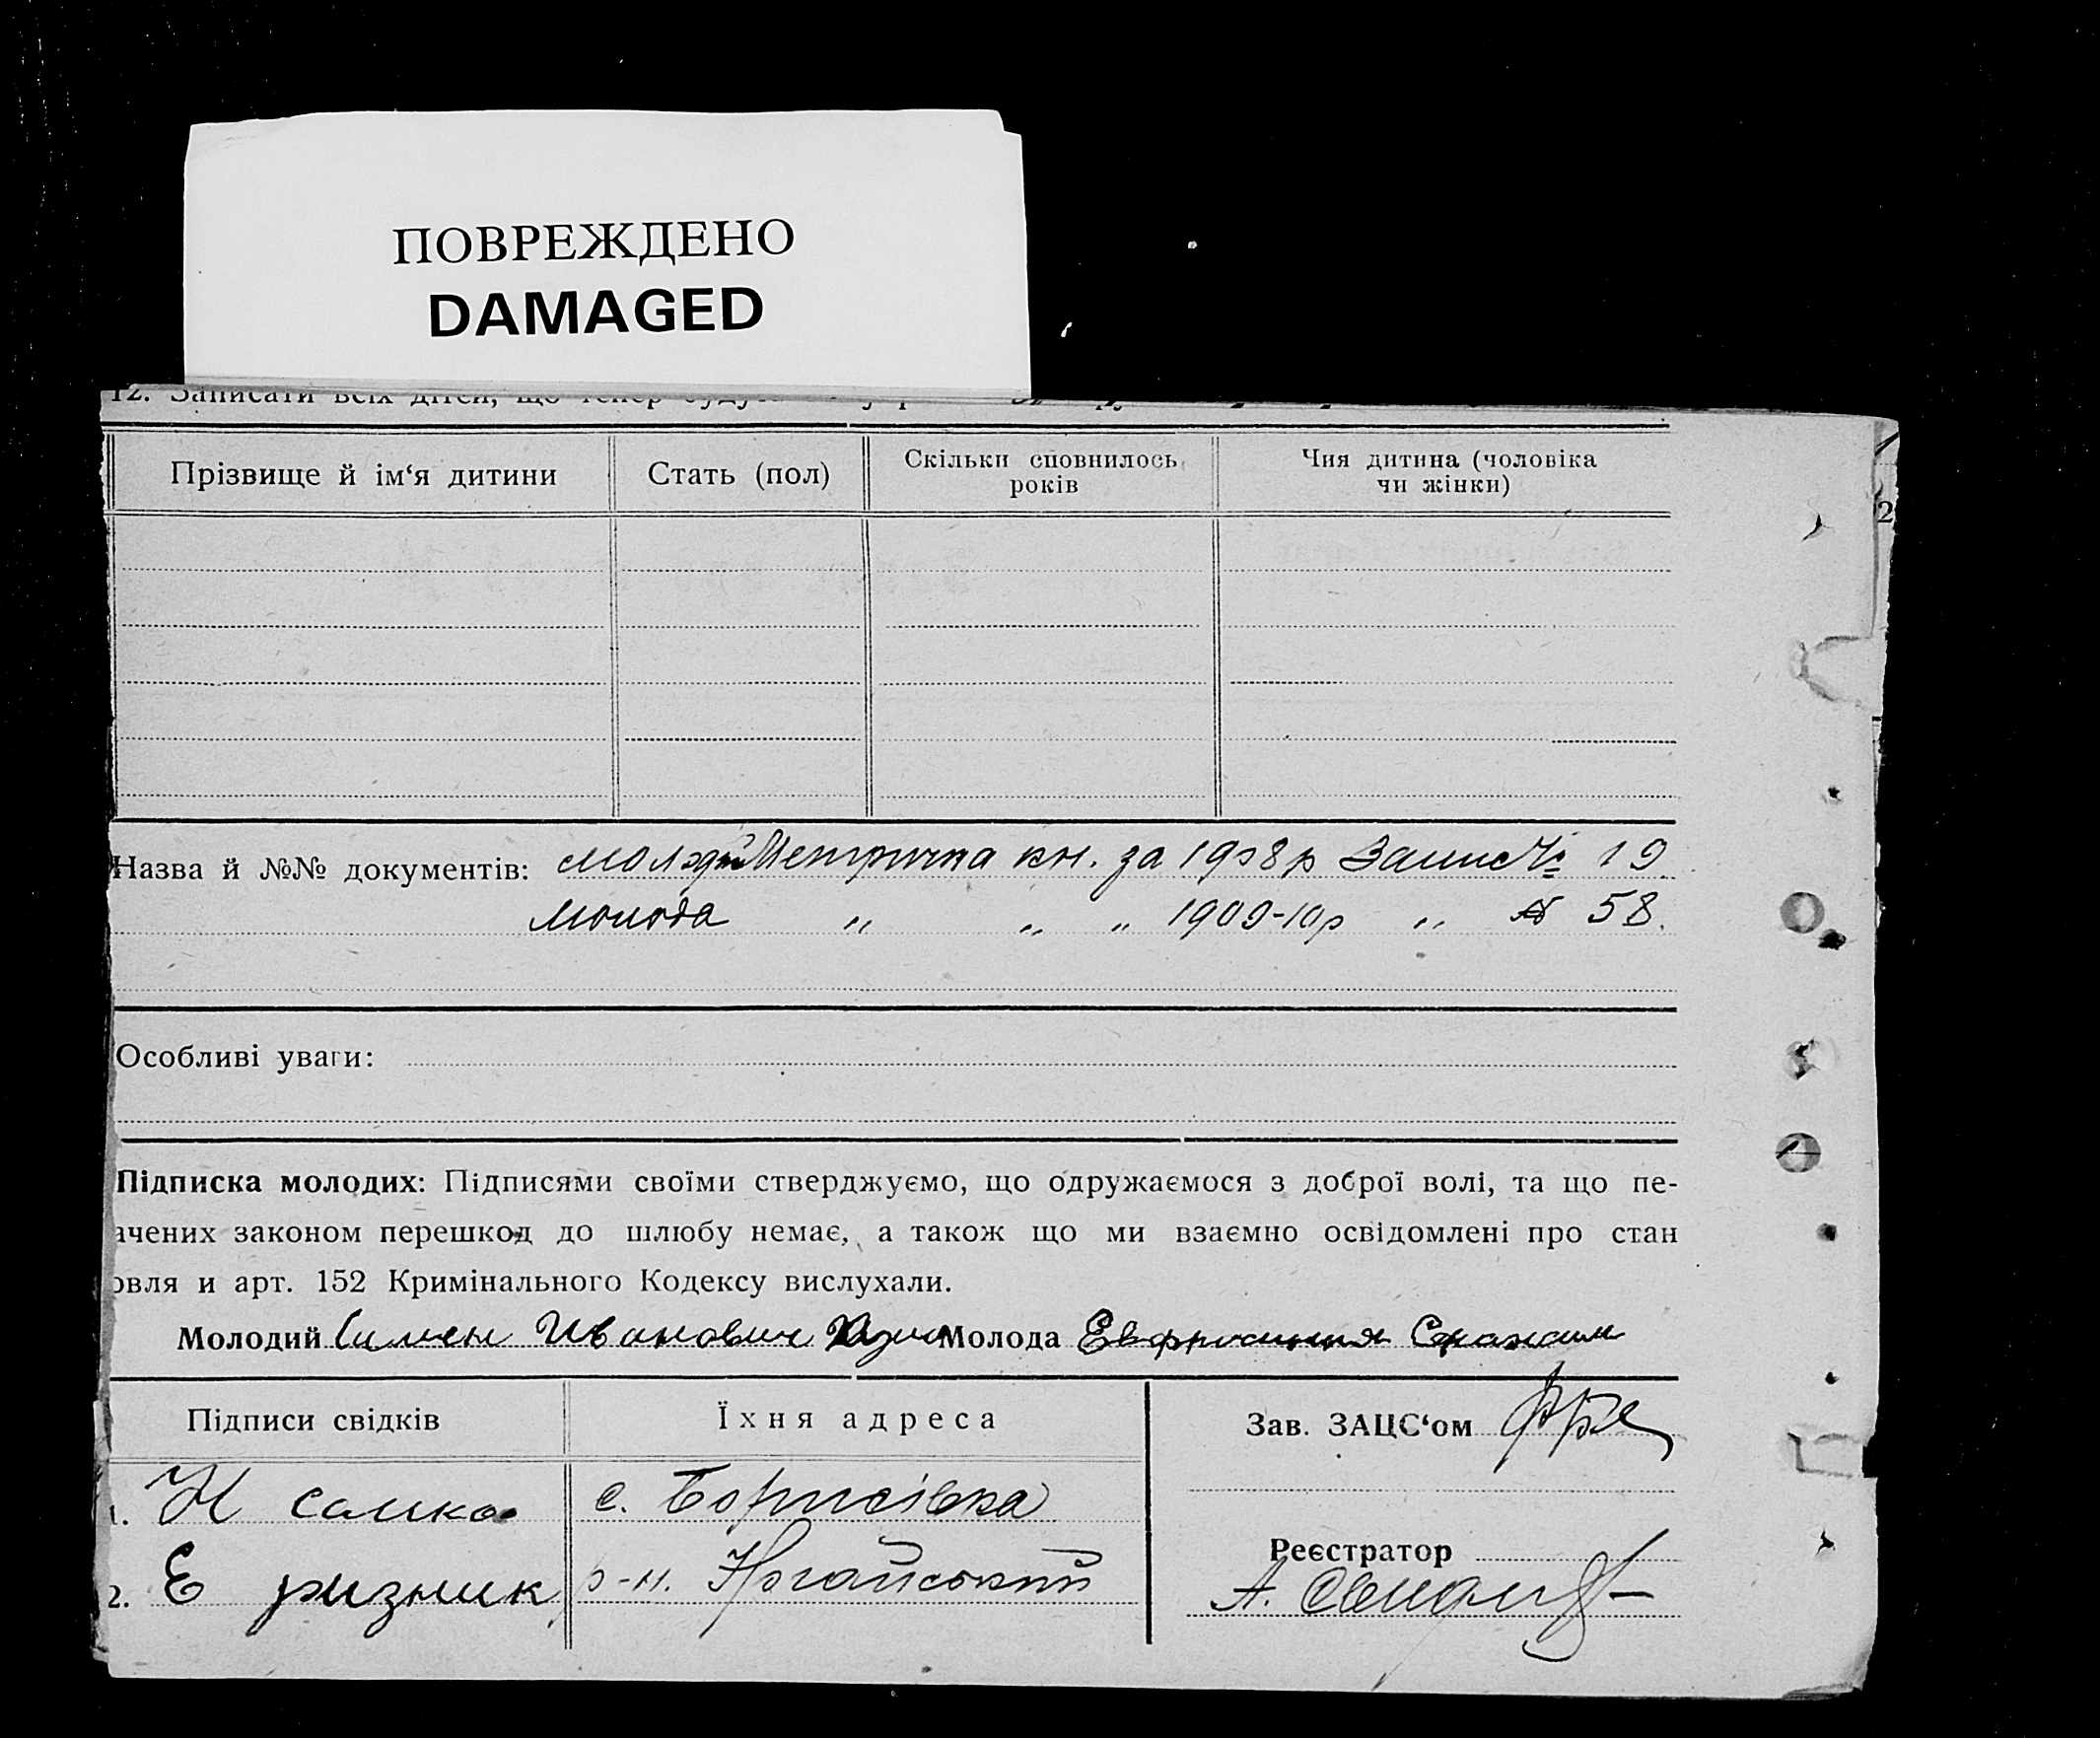 ПОВРЕЖДЕНО
DAMAGED
12. Записати всіх дітей, що тепер
Прізвище й ім‘я дитини Стать (пол) Скільки сповнилось років Чия дитина (чоловіка чи жінки)
2
Назва й №№ документів: Метрична кн. за 1908 р Запис № 19.
Молода „ „ „ 1909-10р „ № 58.
Особливі уваги:
Підписка молодих: Підписями своїми стверджуємо, що одружаємося з доброї волі, та що пе-
ачених законом перешкод до шлюбу немає, а також що ми взаємно освідомлені про стан
овля и арт. 152 Кримінального Кодексу вислухали.
Молодий Іванович Молода
Підписи свідків Їхня адреса Зав. ЗАЦС‘ом
1. Н самко с. Борисівка
Реєстратор
2. Е ризник р-н.
А.